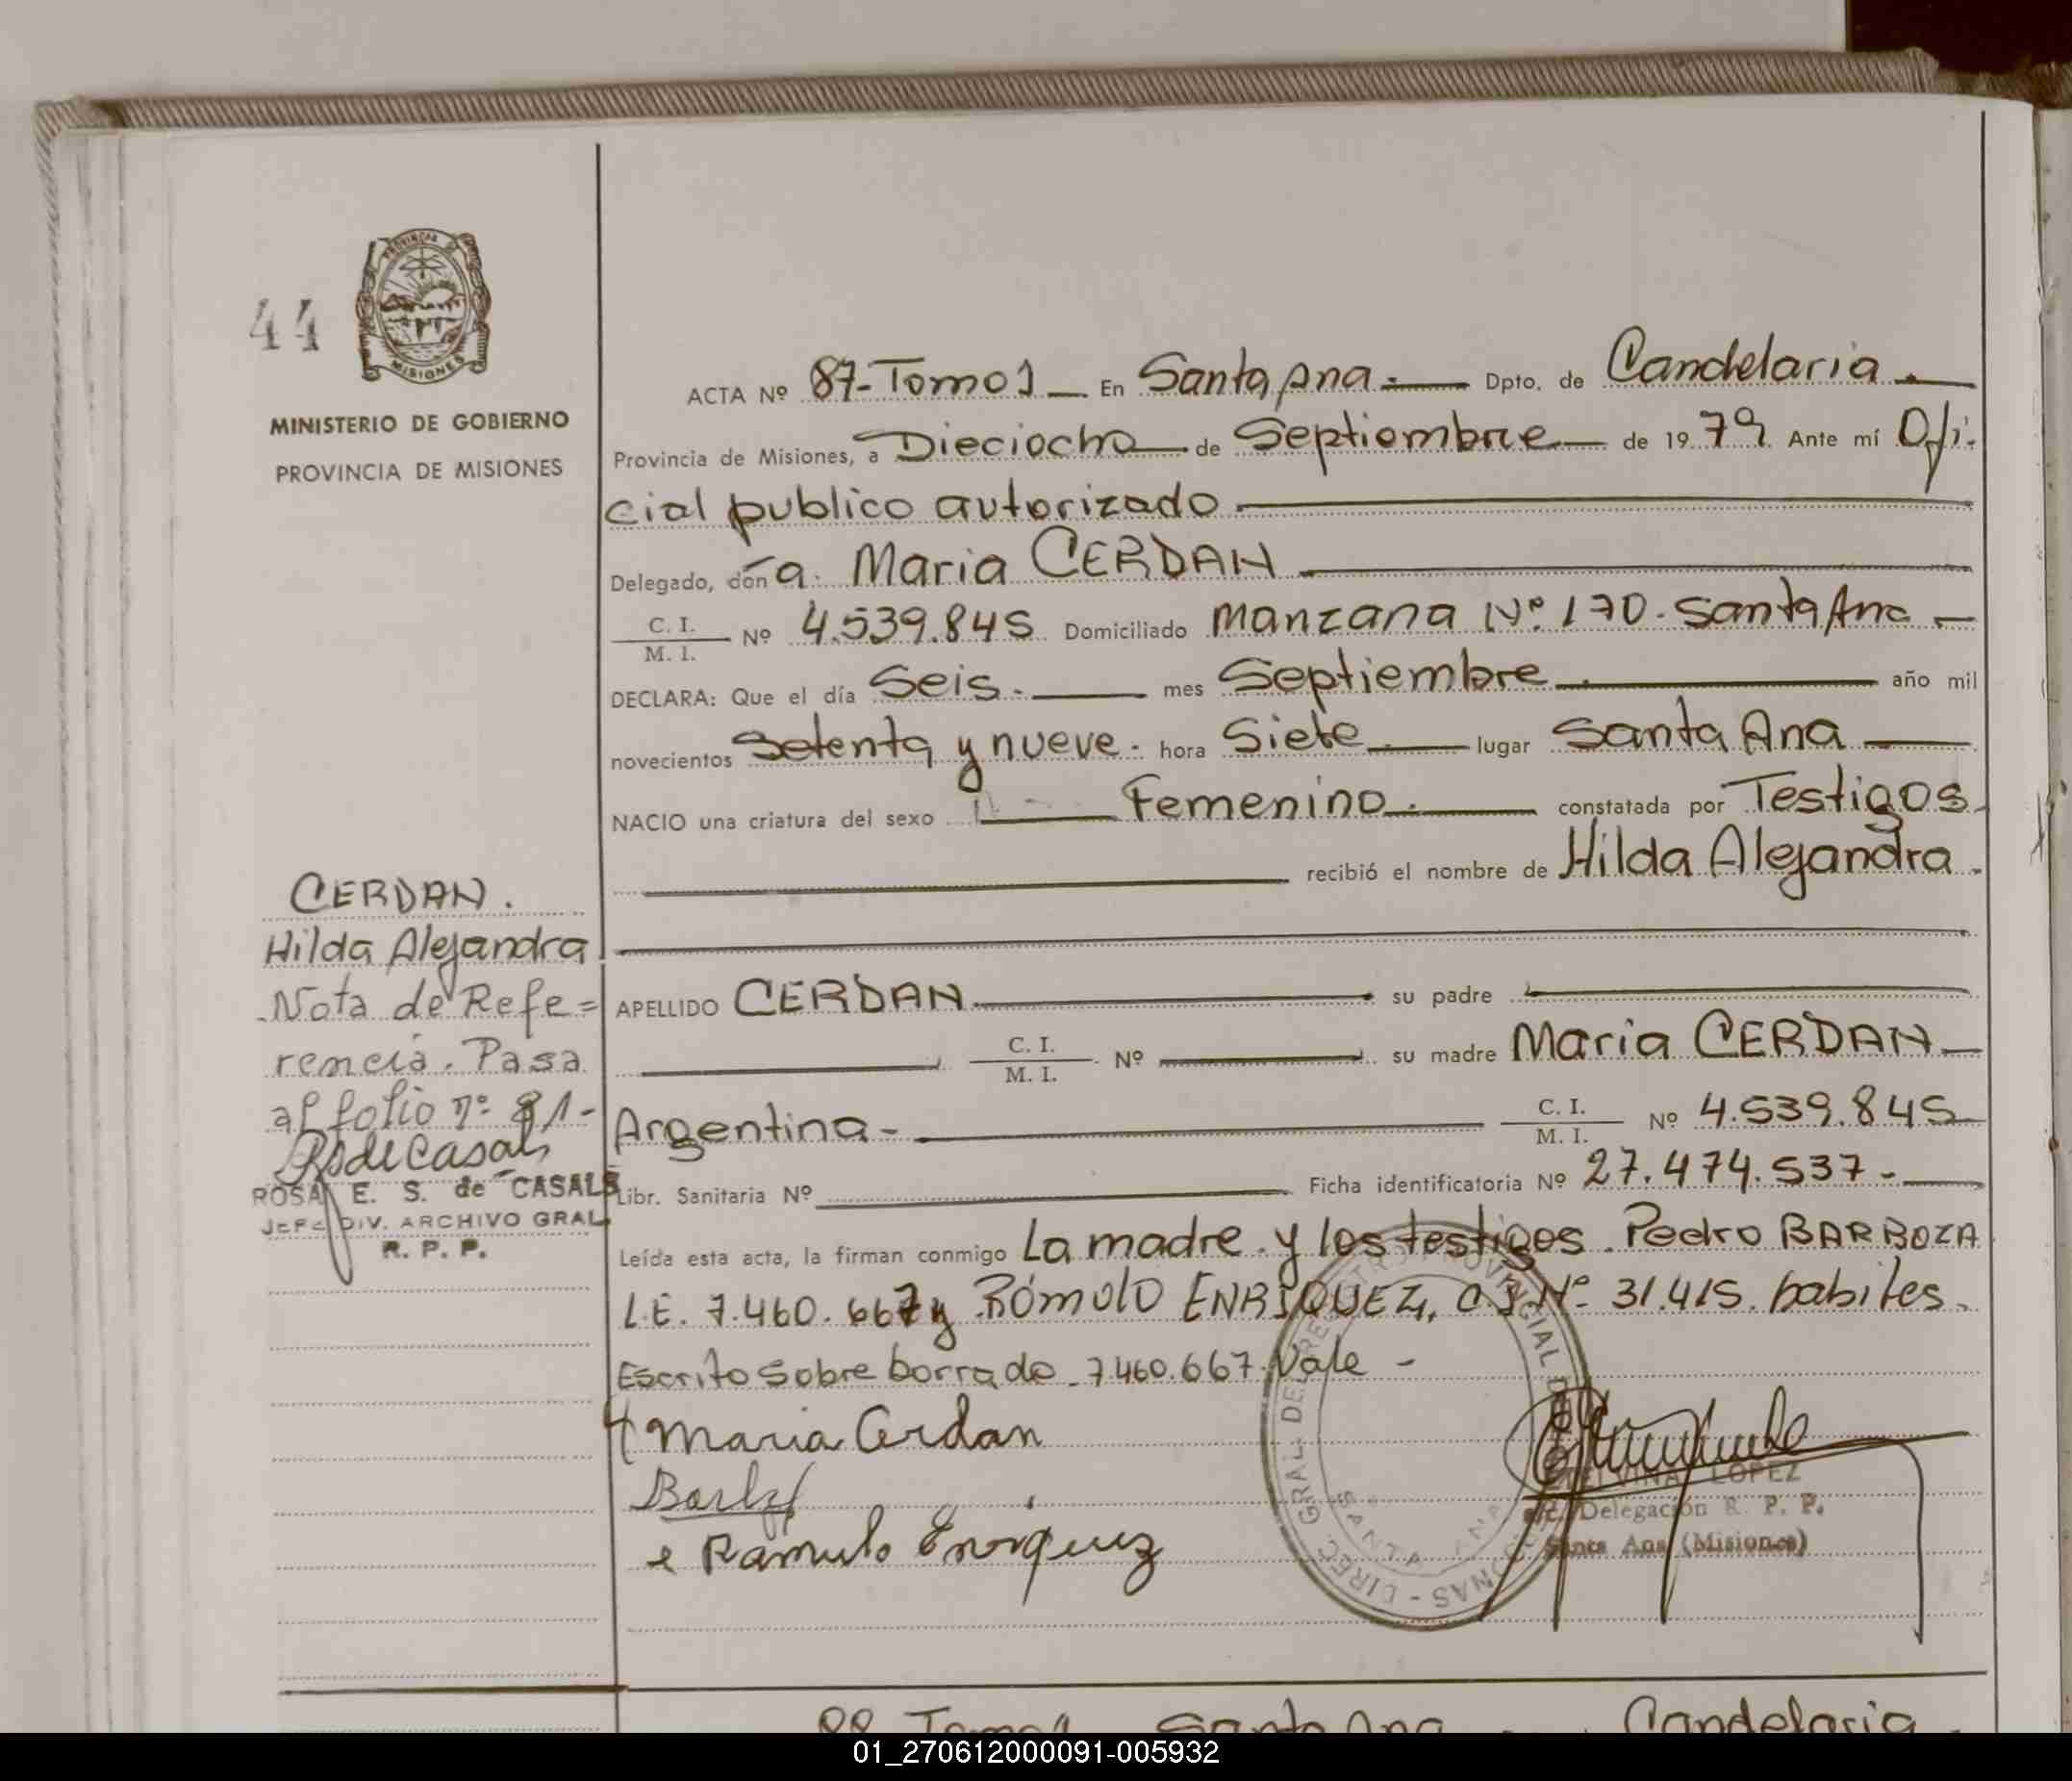 44
PROVINCIA
MISIONES
MINISTERIO DE GOBIERNO
PROVINCIA DE MISIONES
ACTA Nº 87-Tomo 1 En Santa Ana.- Dpto. de Candelaria.-
Provincia de Misiones, a Dieciocho de Septiembre de 1979 Ante mí Ofi-
cial publico autorizado
Delegado, don̄a. Maria CERDAN
C. I.
M. I.
Nº 4.539.845 Domiciliado Manzana Nº 170. Santa Ana -
DECLARA: Que el día Seis.- mes Septiembre.- año mil
novecientos Setenta y nueve. hora Siete lugar Santa Ana
NACIO una criatura del sexo Femenino.- constatada por Testigos
recibió el nombre de Hilda Alejandra.
CERDAN.
Hilda Alejandra
Nota de Refe=
rencia. Pasa
al folio nº 81-
RSdeCasals
ROSA E. S. de CASALS
JEFE DIV. ARCHIVO GRAL.
R. P. P.
APELLIDO CERDAN su padre
C. I.
M. I.
Nº su madre Maria CERDAN
Argentina- C. I.
M. I.
Nº 4.539.845
Libr. Sanitaria Nº Ficha identificatoria Nº 27.474.537-
Leída esta acta, la firman conmigo La madre y los testigos. Pedro BARBOZA
L.E. 7.460.667 y Rómulo ENRIQUEZ, C.I Nº 31.415. habiles.
Escrito sobre borrado 7460.667. Vale -
Maria Cerdan
Ramulo Enriquez
DIREC. GRAL. DEL REGISTRO PROVINCIAL DE LAS PERSONAS -
SANTA ANA
ETELVINA LOPEZ
Delegación R. P. P.
Santa Ana (Misiones)
88 Tomo 1 Santa Ana Candelaria
01_270612000091-005932